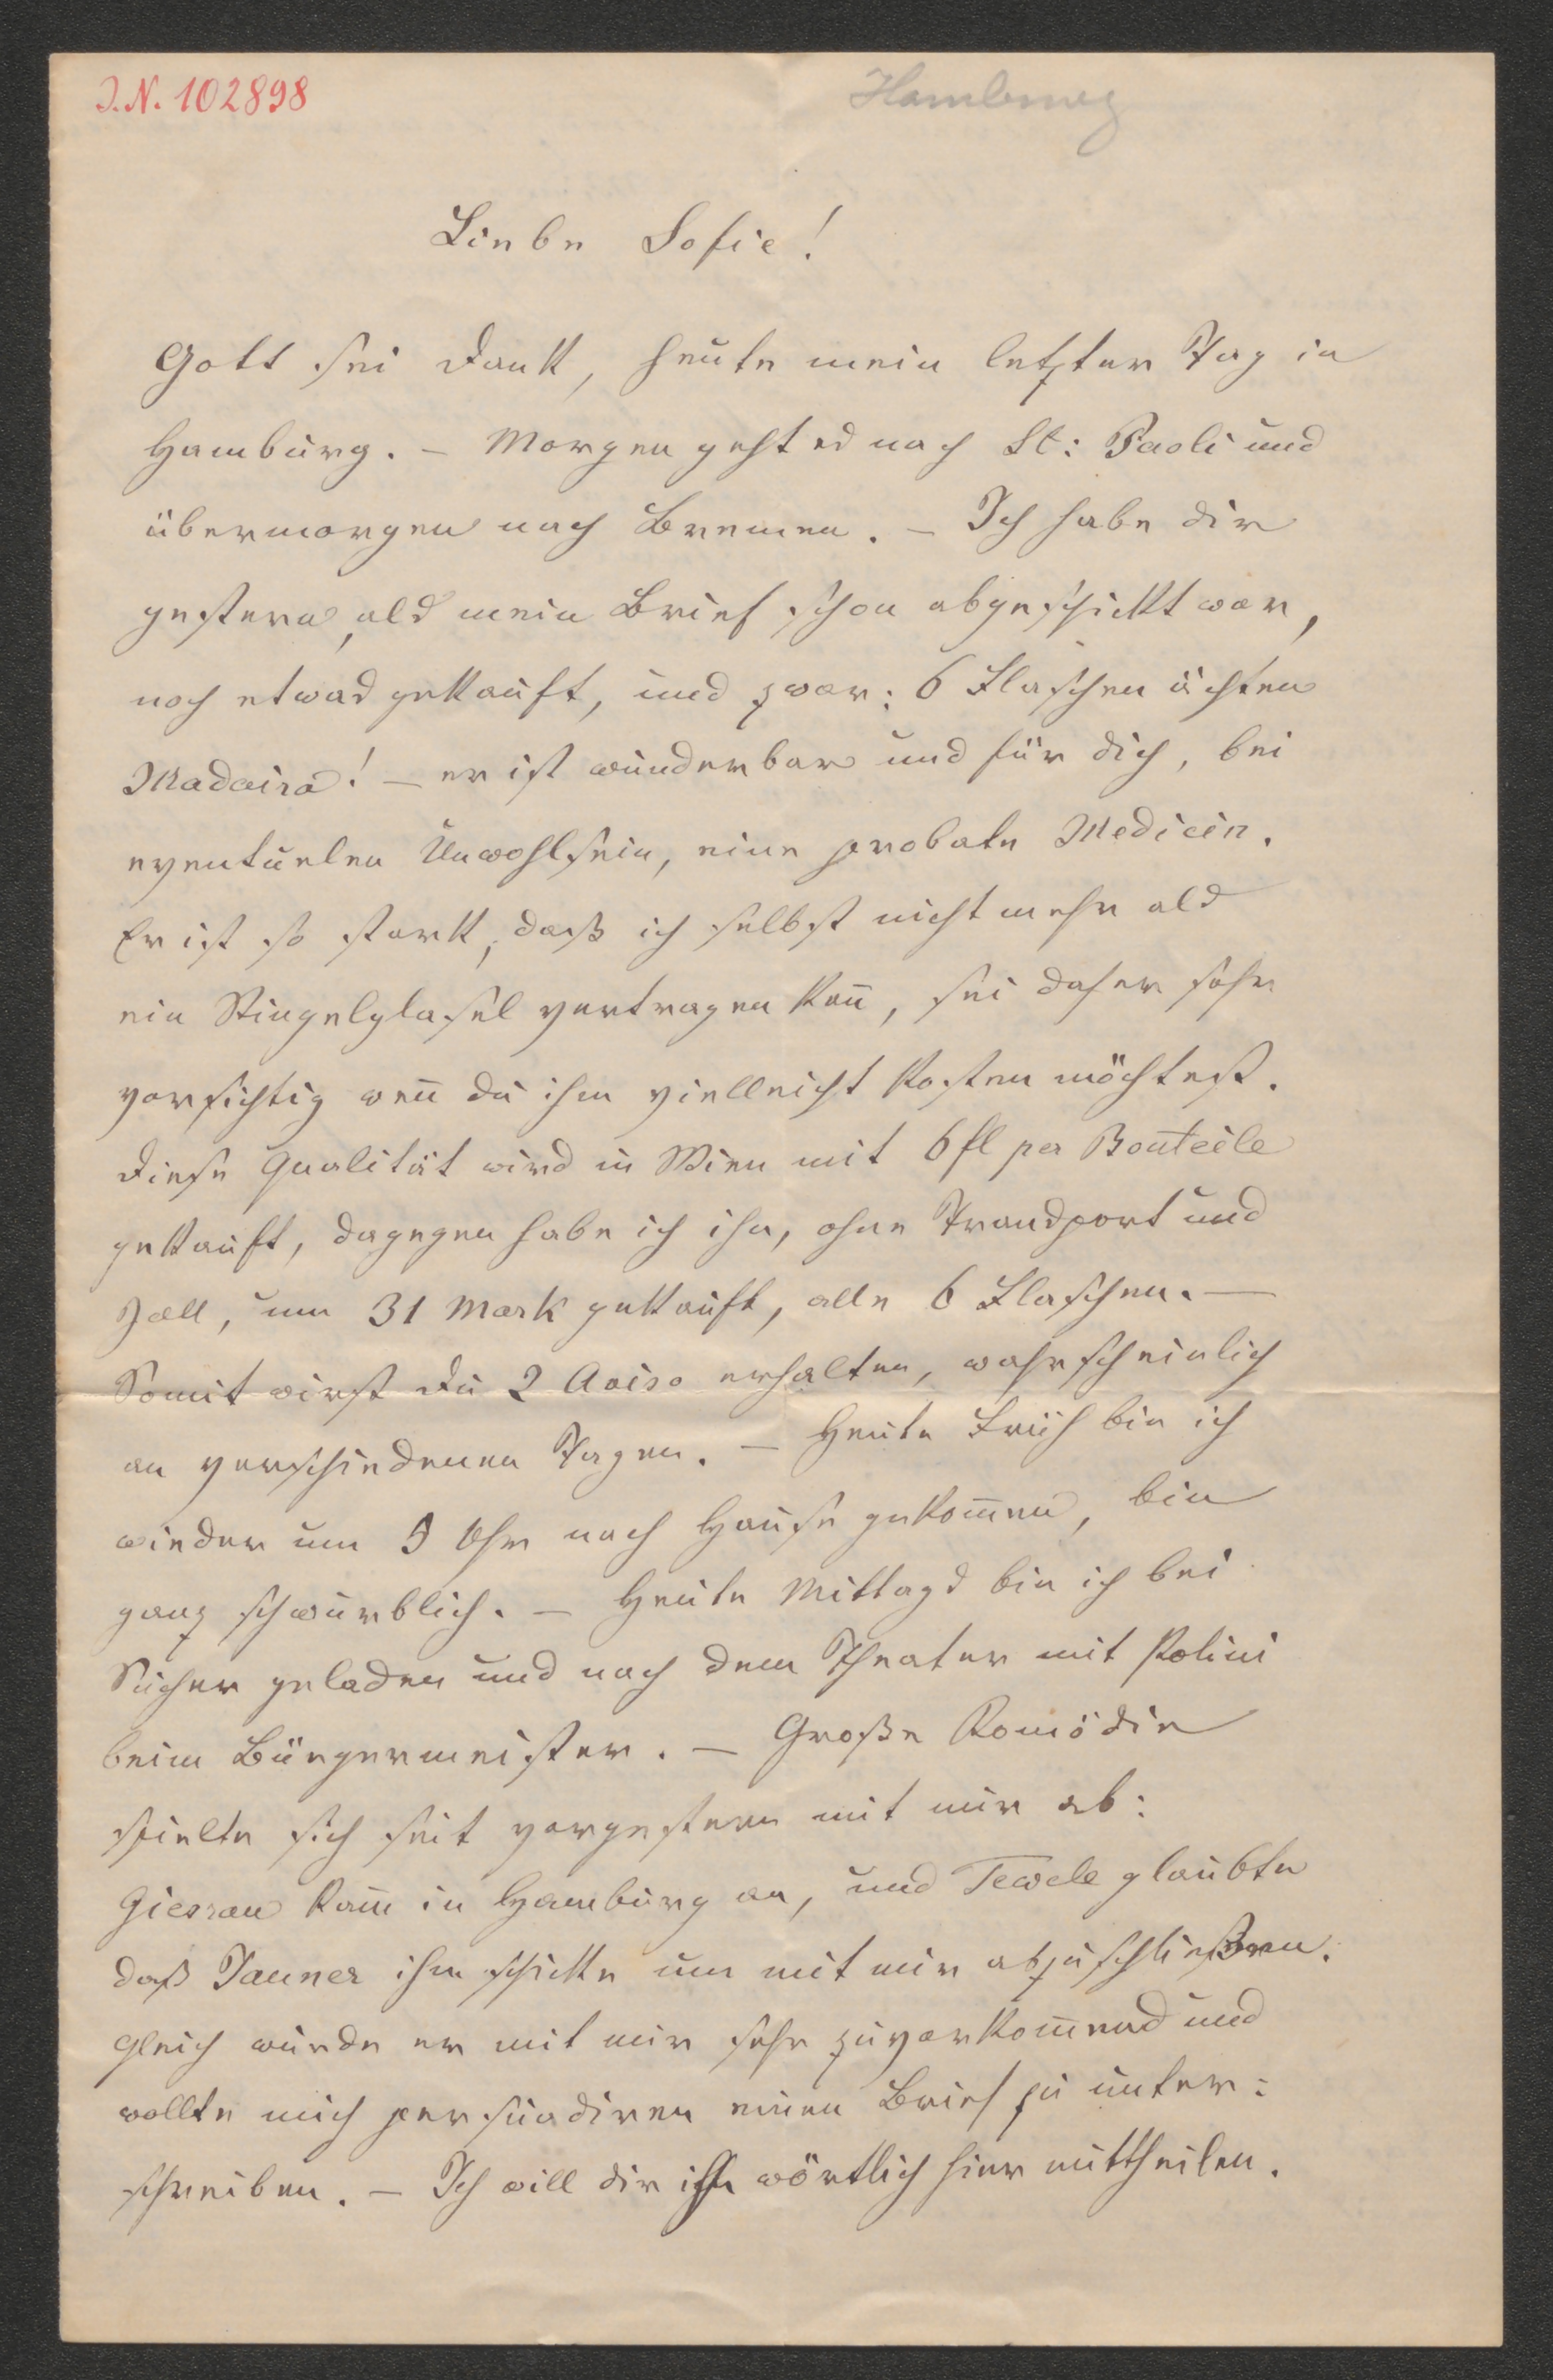 J.N. 102898
Hamburg
Liebe Sofie!
Gott sei Dank, heute mein letzter Tag in
Hamburg. – Morgen geht es nach St: Paoli und
übermorgen nach Bremen. – Ich habe dir
gestern, als mein Brief schon abgeschickt war,
noch etwas gekauft, und zwar: 6 Flaschen ächten
Madaira! – er ist wunderbar und für dich, bei
eventuelen Unwohlsein, eine probate Medicin.
Er ist so stark, daß ich selbst nicht mehr als
ein Stingelglasel vertragen kan̅, sei daher sehr
vorsichtig wen̅ du ihn vielleicht kosten möchtest.
Diese Qualität wird in Wien mit 6 fl per Bouteile
gekauft, dagegen habe ich ihn, ohne Transport und
Zoll, um 31 Mark gekauft, alle 6 Flaschen. –
Somit wirst du 2 Aviso erhalten, wahrscheinlich
an verschiedenen Tagen. – Heute Früh bin ich
wieder um 5 Uhr nach Hause gekom̅en, bin
ganz schwürblich. – Heute Mittags bin ich bei
Sucher geladen und nach dem Theater mit Polini
beim Bürgermeister. – Große Komödie
spielte sich seit vorgestern mit mir ab:
Giesrau kam in Hamburg an, und Tewele glaubte
daß Jauner ihn schickte um mit mir abzuschließen.
Gleich wurde er mit mir sehr zuvorkom̅end und
wollte mich persuadiren einen Brief zu unter:
schreiben. – Ich will dir ihn wörtlich hier mittheilen.